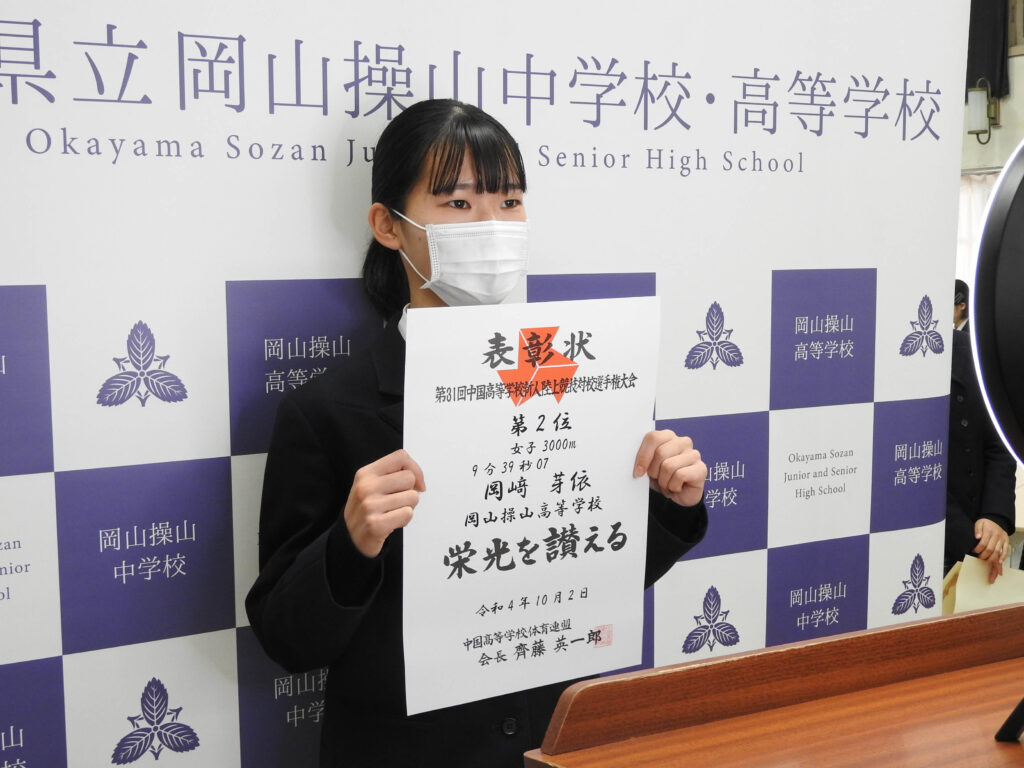 県立岡山操山中学校・高等学校
Okayama Sozan Ju
Senior High School
表彰状
第31回中国高等学校新人陸上競技対校選手権大会
第2位
女子3000m
9分39秒07
岡﨑 芽依
岡山操山高等学校
栄光を讃える
令和4年10月2日
中国高等学校体育連盟
会長 齊藤 英一郎
岡山操山
高等学
岡山操山
高等学校
岡山操山
中学校
操山
学校
Okayama Sozan
Junior and Senior
High School
岡山操山
高等学校
ozan
Senior
ol
岡山
中学
岡山操山
中学校
山